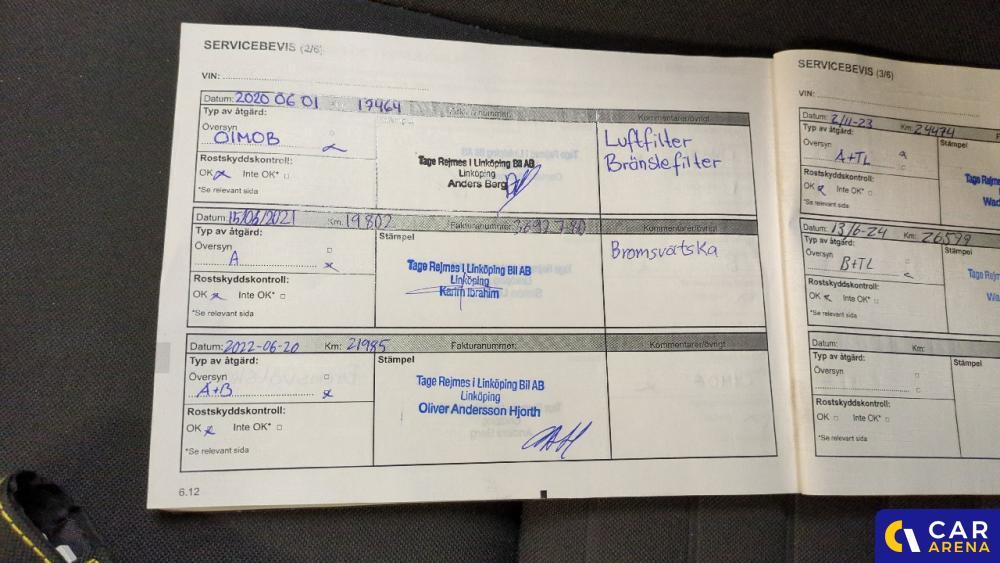 SERVICEBEVIS (2/6)
VIN:
Datum: 2020 06 01 17464 Fakturanummer: Kommentarer/övrigt
Typ av åtgärd:
Översyn
OIMOB
Rostskyddskontroll:
OK x Inte OK*
*Se relevant sida
Tage Rejmes i Linköping Bil AB
Linköping
Anders Berg
Luftfilter
Bränslefilter
Datum: 15/06/2021 Km: 19802 Fakturanummer: Kommentarer/övrigt
Typ av åtgärd:
Översyn
A x
Rostskyddskontroll:
OK x Inte OK*
*Se relevant sida
Stämpel
Tage Rejmes i Linköping Bil AB
Linköping
Karim Ibrahim
Bromsvätska
Datum: 2022-06-20 Km: 21985 Fakturanummer: Kommentarer/övrigt
Typ av åtgärd:
Översyn
A+B x
Rostskyddskontroll:
OK x Inte OK*
*Se relevant sida
Stämpel
Tage Rejmes i Linköping Bil AB
Linköping
Oliver Andersson Hjorth
6.12
SERVICEBEVIS (3/6)
VIN:
Datum: 2/11-23 Km: 24474
Typ av åtgärd:
Översyn
A+TL
Rostskyddskontroll:
OK x Inte OK*
*Se relevant sida
Stämpel
Tage Rejm
Wad
Datum: 13/6-24 Km: 26599
Typ av åtgärd:
Översyn
B+TL
Rostskyddskontroll:
OK x Inte OK*
*Se relevant sida
Stämpel
Tage Rejm
Datum: Km:
Typ av åtgärd:
Översyn
Rostskyddskontroll:
OK Inte OK*
*Se relevant sida
Stämpel
CAR
ARENA